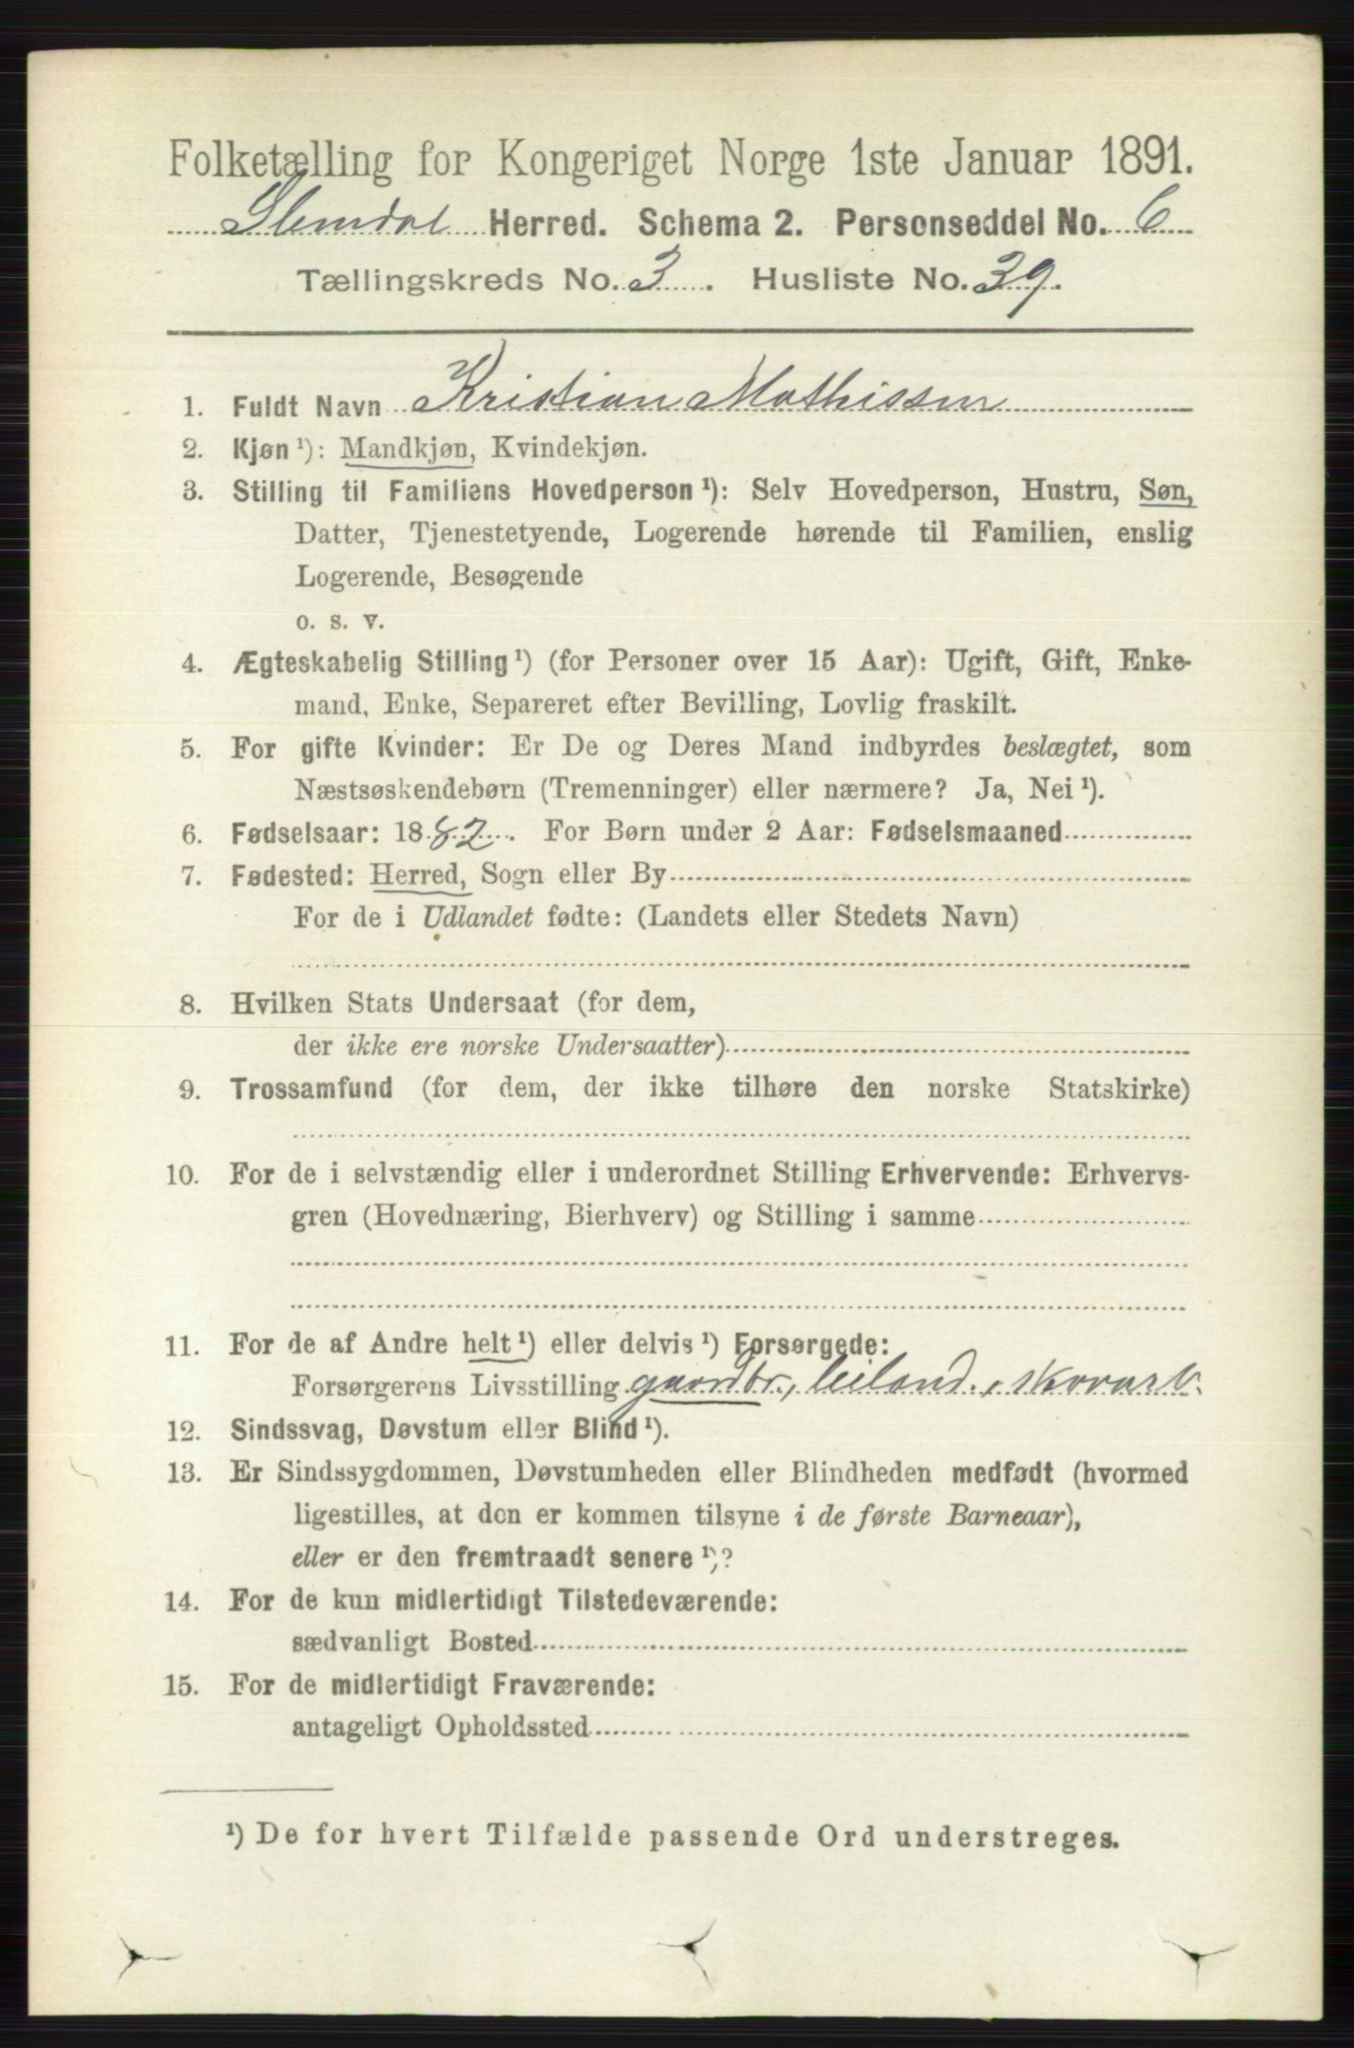 Folketælling for Kongeriget Norge 1ste Januar 1891.
Slemdal Herred. Schema 2. Personseddel No. 6
Tællingskreds No. 3. Husliste No. 39.
1. Fuldt Navn Kristian Mathissen
2. Kjøn ¹): Mandkjøn, Kvindekjøn.
3. Stilling til Familiens Hovedperson ¹): Selv Hovedperson, Hustru, Søn,
Datter, Tjenestetyende, Logerende hørende til Familien, enslig
Logerende, Besøgende
o. s. v.
4. Ægteskabelig Stilling ¹) (for Personer over 15 Aar): Ugift, Gift, Enke-
mand, Enke, Separeret efter Bevilling, Lovlig fraskilt.
5. For gifte Kvinder: Er De og Deres Mand indbyrdes beslægtet, som
Næstsøskendebørn (Tremenninger) eller nærmere? Ja, Nei ¹).
6. Fødselsaar: 1882. For Børn under 2 Aar: Fødselsmaaned
7. Fødested: Herred, Sogn eller By
For de i Udlandet fødte: (Landets eller Stedets Navn)
8. Hvilken Stats Undersaat (for dem,
der ikke ere norske Undersaatter)
9. Trossamfund (for dem, der ikke tilhøre den norske Statskirke)
10. For de i selvstændig eller i underordnet Stilling Erhvervende: Erhvervs-
gren (Hovednæring, Bierhverv) og Stilling i samme
11. For de af Andre helt ¹) eller delvis ¹) Forsørgede:
Forsørgerens Livsstilling gaardbr., leiland., skovarb.
12. Sindssvag, Døvstum eller Blind ¹).
13. Er Sindssygdommen, Døvstumheden eller Blindheden medfødt (hvormed
ligestilles, at den er kommen tilsyne i de første Barneaar),
eller er den fremtraadt senere ¹)?
14. For de kun midlertidigt Tilstedeværende:
sædvanligt Bosted
15. For de midlertidigt Fraværende:
antageligt Opholdssted
¹) De for hvert Tilfælde passende Ord understreges.